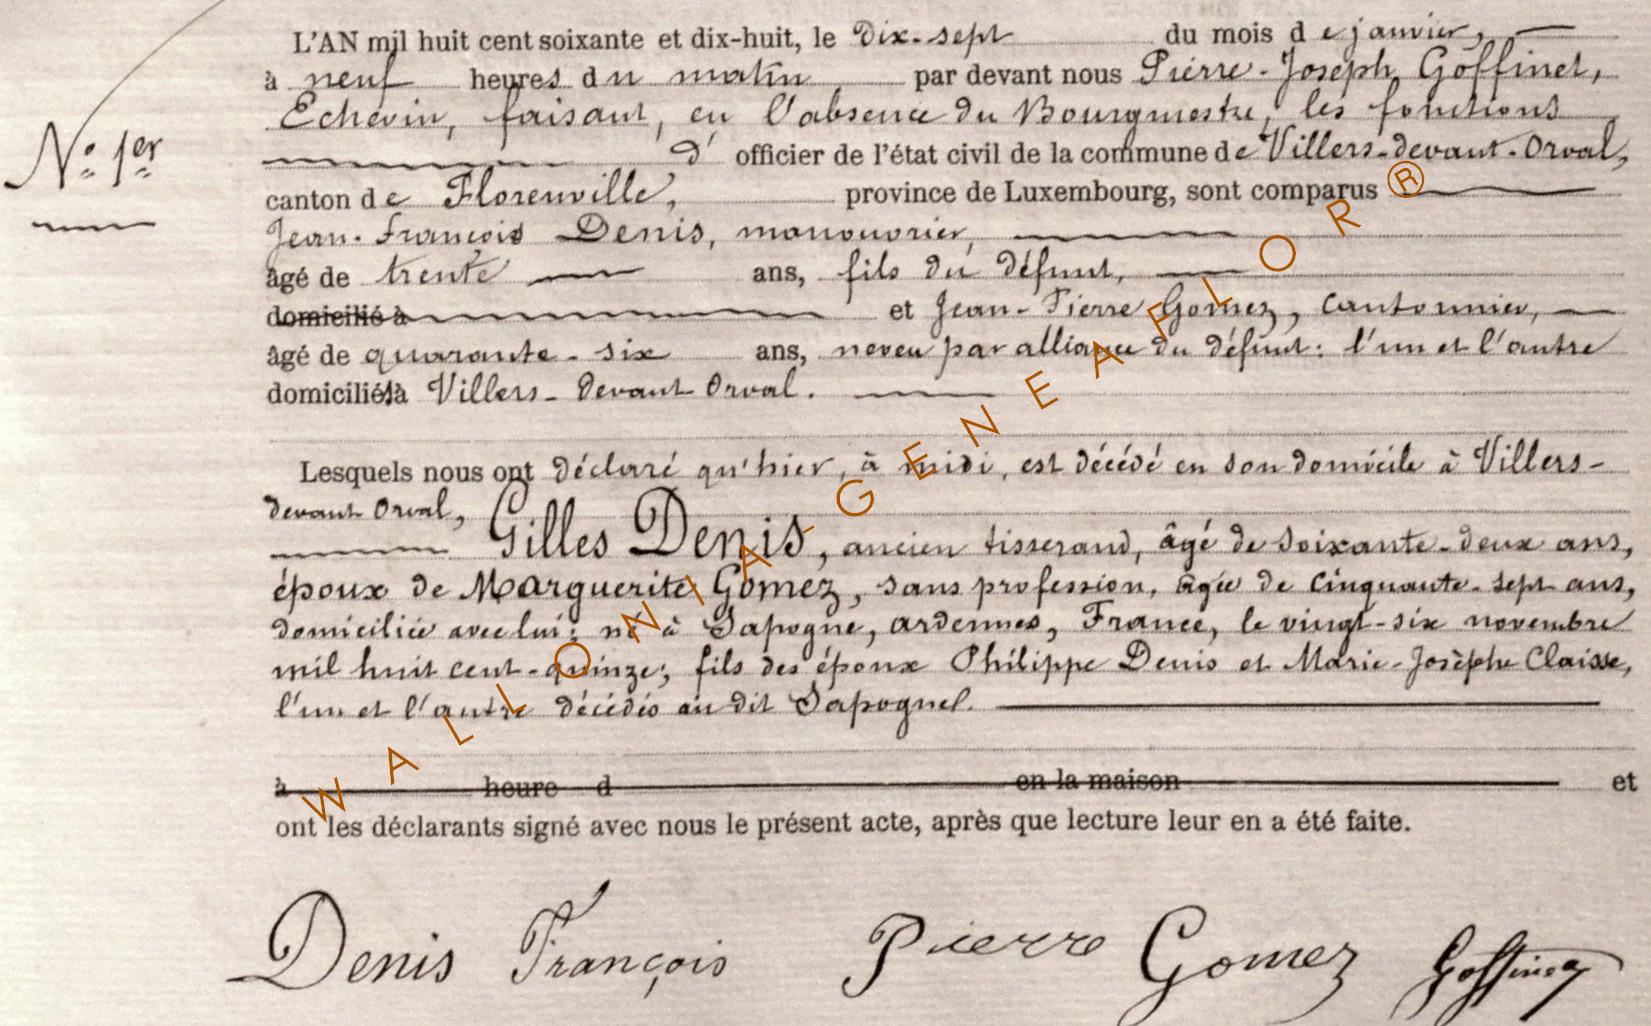 L'AN mil huit cent soixante et dix-huit, le dix-sept du mois de janvier,
à neuf heures du matin par devant nous Pierre-Joseph Goffinet,
Echevin, faisant, en l'absence du Bourgmestre, les fonctions
N° 1er
d' officier de l'état civil de la commune de Villers-devant-Orval,
canton de Florenville, province de Luxembourg, sont comparus
Jean-François Denis, manouvrier,
âgé de trente ans, fils du défunt,
domicilié à et Jean-Pierre Gomez, cantonnier,
âgé de quarante-six ans, neveu par alliance du défunt: l'un et l'autre
domiciliés à Villers-devant Orval.
Lesquels nous ont déclaré qu'hier, à midi, est décédé en son domicile à Villers-
devant Orval,
Gilles Denis, ancien tisserand, âgé de soixante-deux ans,
époux de Marguerite Gomez, sans profession, âgée de cinquante-sept ans,
domiciliée avec lui; né à Sapogne, ardennes, France, le vingt-six novembre
mil huit cent-quinze; fils des époux Philippe Denis et Marie-Josèphe Claisse,
l'un et l'autre décédés au dit Sapogne.
à heure d en la maison et
ont les déclarants signé avec nous le présent acte, après que lecture leur en a été faite.
Denis François Pierre Gomez Goffinet
WALLONIA-GENEAFLOR®